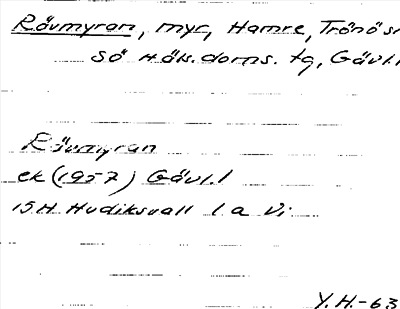 Rävmyran, myr, Hamre, Trönö sn
Sö Häls.doms. tg, Gävl.l
Rävmyran
ek (1957) Gävl.l
15H Hudiksvall 1 a Vi
Y.H.-63